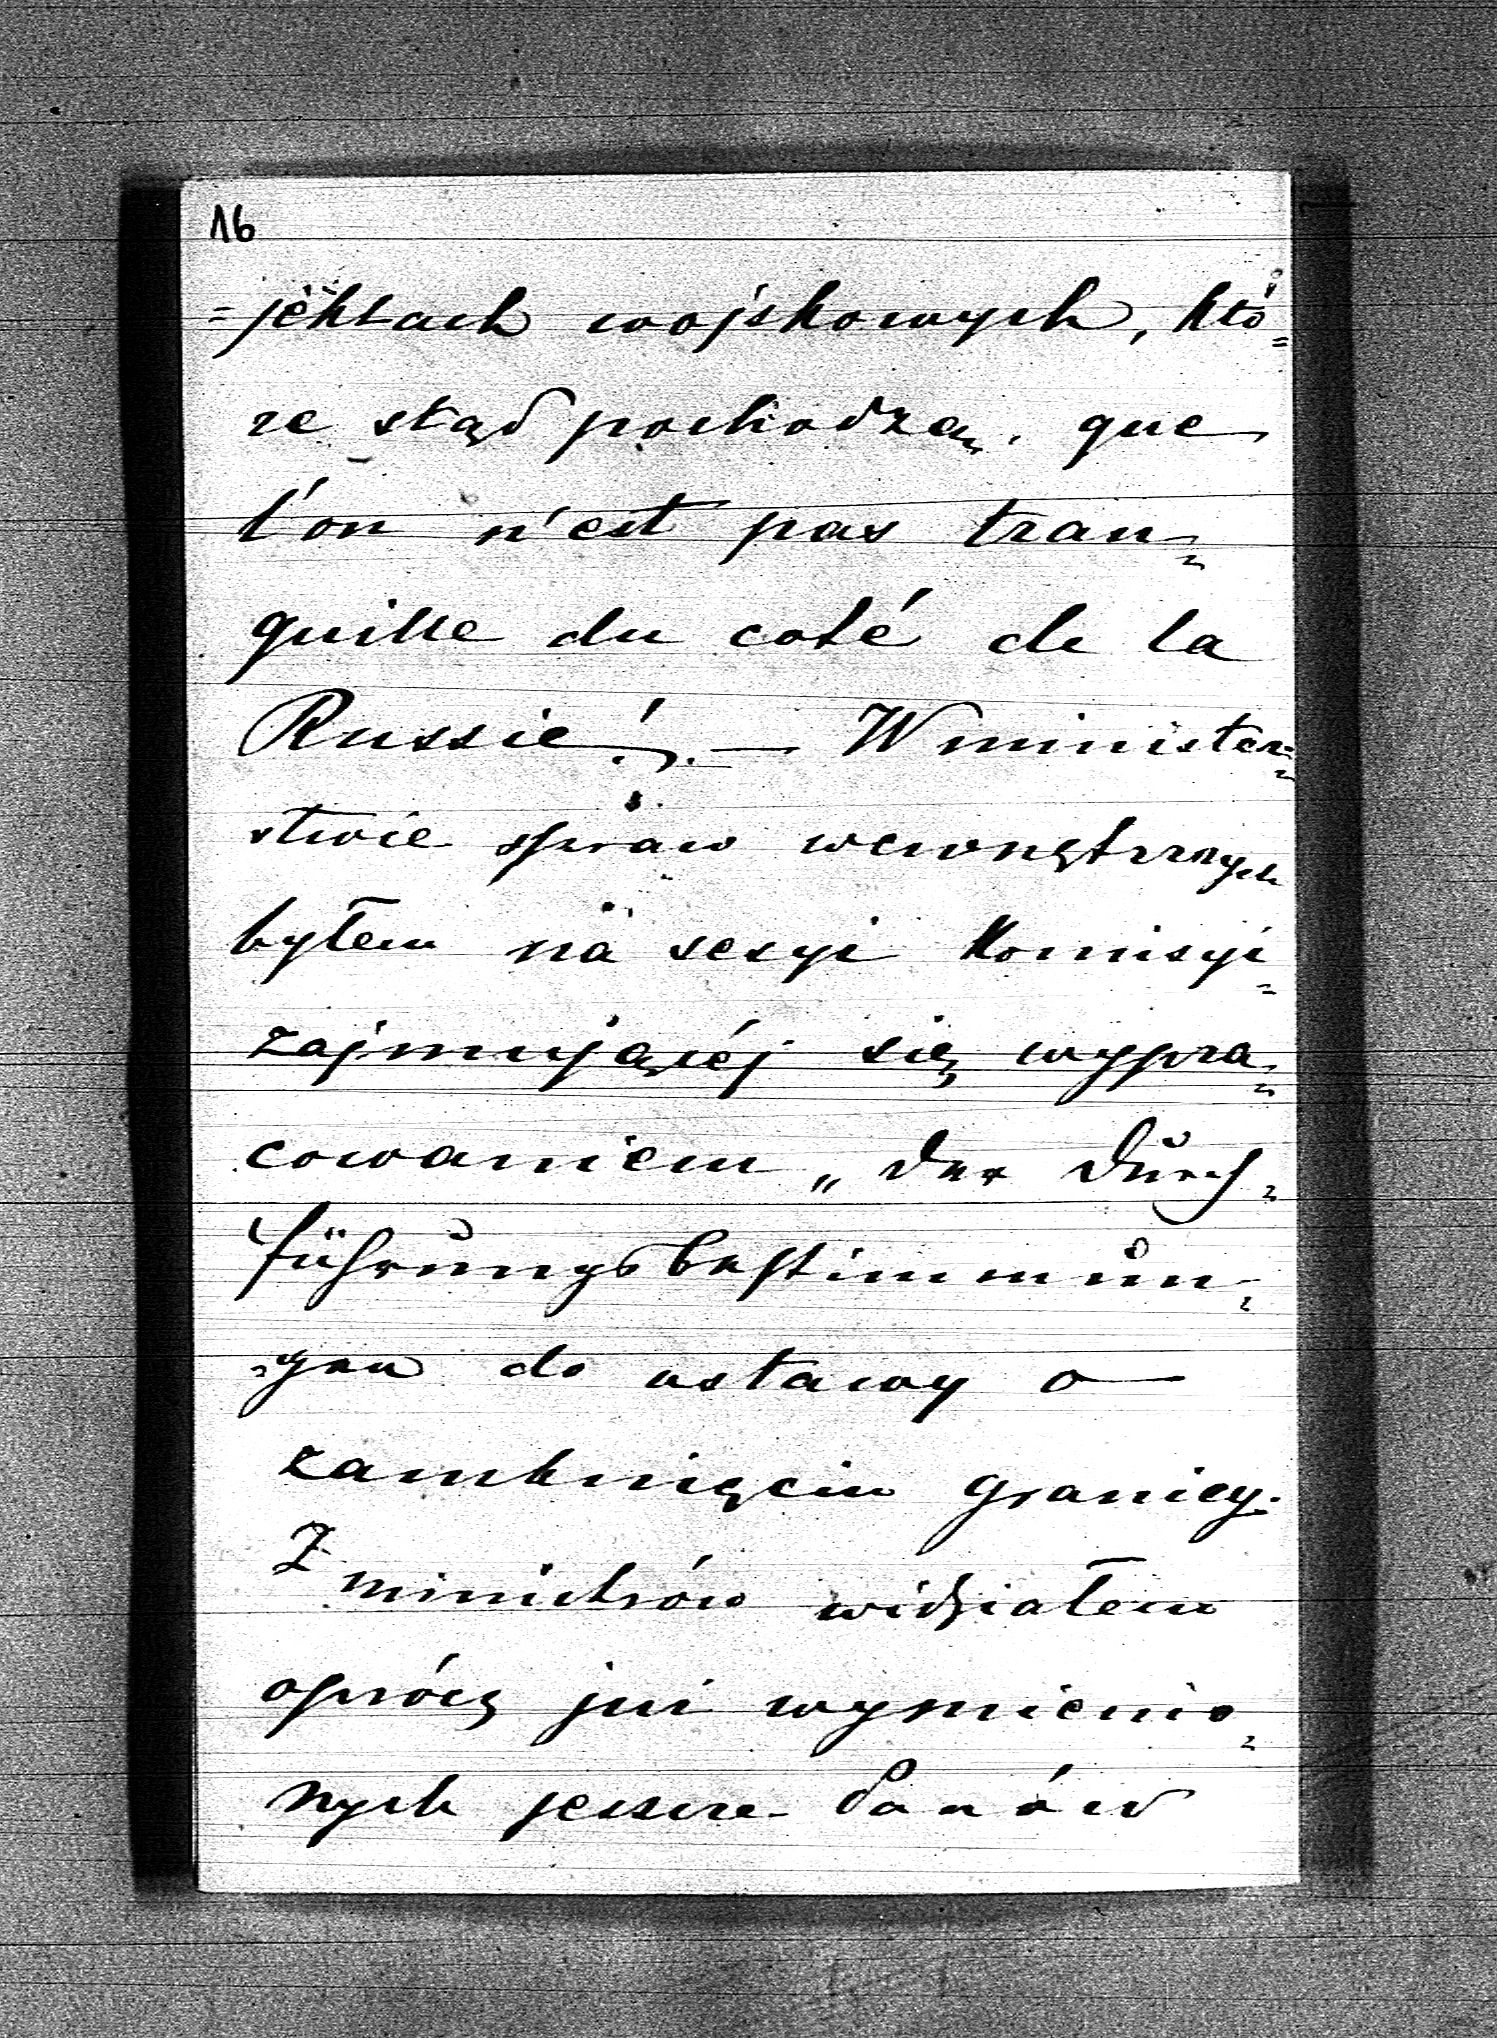 16
=jektach wojskowych, któ=
re stąd pochodzą, que
l'on n'est pas tran=
quille du coté de la
Russie! — W minister=
stwie spraw wewnętrznych
byłem na sesyi Komisyi
zajmującéj się wypra=
cowaniem „der Durch=
führungsbestimmun=
=gen do ustawy o
zamknięciu granicy.
Z ministrów widziałem
oprócz już wymienio=
nych jeszcze Panów